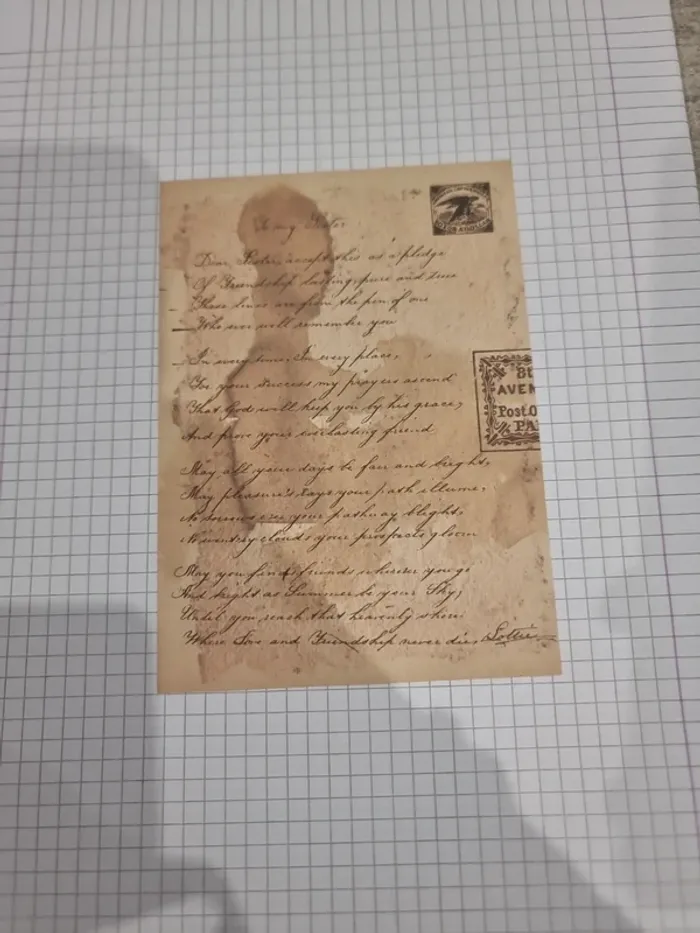 To my Sister
Dear Sister, accept this as a pledge
Of Friendship lasting, pure and true
These lines are from the pen of one
Who ever will remember you
In every time, In every place,
For your success my prayers ascend
That God will keep you by his grace,
And prove your everlasting friend
May all your days be fair and bright,
May pleasure's rays your path illume,
No sorrows ere your pathway blight,
No wintry clouds your prospects gloom
May you find friends wherever you go
And bright as Summer be your Sky,
Until you reach that heavenly shore
Where Love and Friendship never die. Lottie
AVEN
Post.O
PA